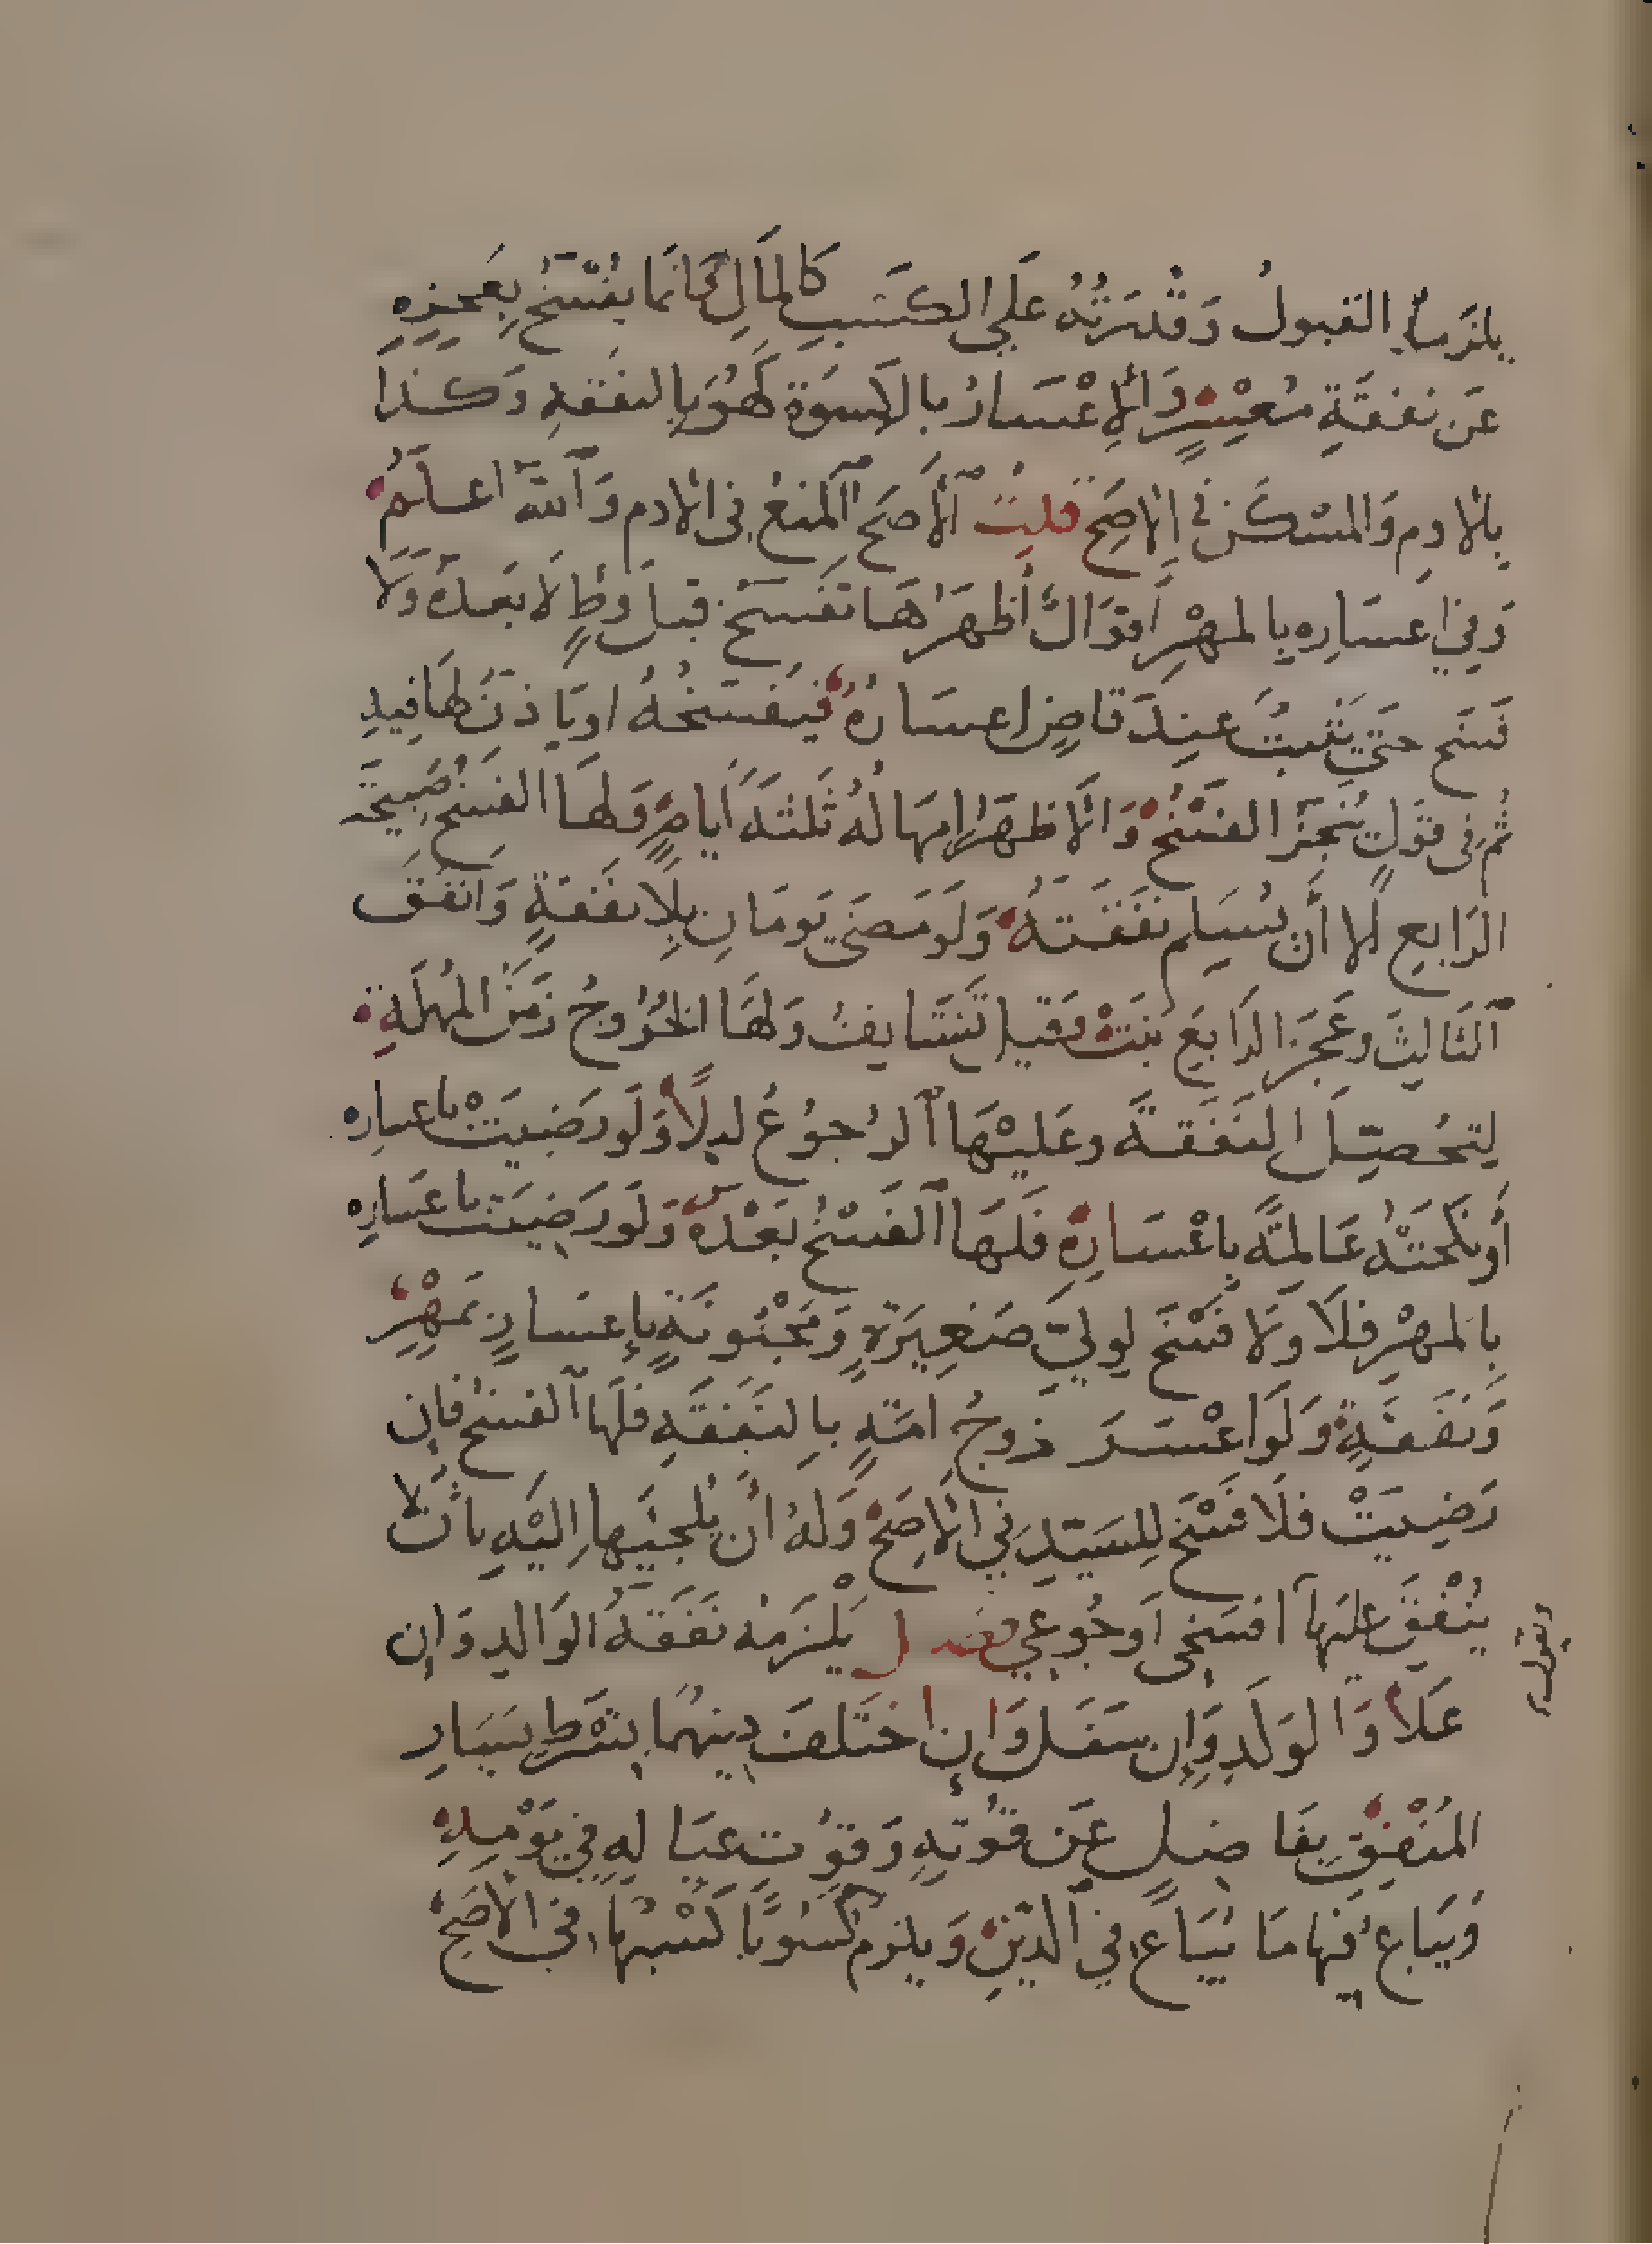 يلزمها القبولُ وَقُدْرَتُهُ عَلَى الكَسْبِ كَالمَالِ وَانَّمَا يُفْسَخُ بِعَجْزِهِ
عَن نفقَةِ مُعْسِرٍ وَالإِعْسَارُ بالكسوَةِ كَهُوَ بِالنفَقهِ وَكَذَا
بِالادمِ وَالمَسْكَنِ فى الاصَحِّ قلتُ الأصَحّ المنعُ فى الادم وَاللّٰه اعلَمُ
وَفِي اعسَارِه بالمهْرِ أَقوَالٌ أظهَرُهَا تفسَخُ قبلَ وَطءٍ لَا بَعدهُ وَلَا
فَسَخ حتى يَثبتُ عِندَ قاضٍ اعسَارُهُ فيَفسَخُهُ اويَاذنُ لهَا فِيهِ
ثُم فى قَولٍ يُنجَزُ الفسْخُ وَالأَظهَرُ امهَالهُ ثَلثَهَ أيامٍ وَلهَا الفسْخُ صَبيحَه
الرَابِعِ الا أَن يُسَلِم نفَقَتَهُ وَلَو مَضَى يَومَانِ بِلَا نفَقةٍ وَانفَقَ
الثَالِثَ وعَجَزَ الرَابَعَ بَنَتْ وَقيل تَسْتَانِفُ وَلَهَا الخُرُوجُ زَمَنَ المُهلَةِ
لِتحُصِيلِ النَفَقهَ وعَلَيْهَا الرُجُوعُ ليلًا وَلَو رَضِيَتْ باعساره
أَونَكَحَتْهُ عَالِمَةً بِاعْسَارِهِ فَلَهَا الفَسْخُ بَعْدَهُ وَلَو رَضيَت باعسَارِه
بِالمهْرِ فلَا وَلا فَسْخَ لِوليِّ صَغِيرَةٍ وَمَجْنُونَةٍ بِإعسَارٍ بمَهْرٍ
وَنفَقَةٍ وَلَو اعْسَرَ زوجُ امَتهٍ بِالنَفقَهِ فلَها الفسْخُ فإِن
رَضِيَتْ فلَا فَسْخَ لِلسَيّدِ فِي الاصَحِّ وَلهُ أن يُلجئَها اليْهِ بأَن لا
يُنْفِقَ عليَها افسَخى اَوجُوعِي فصـل يَلْزَمهُ نفَقهُ الوَالدِ وَان
ويقول
عَلَا وَالوَلَدِ وَإِن سَفَل وَإن اختَلفَ دِينهُما بشَرْطِ يسَارِ
المُنفِقِ بفَاضِلٍ عَن قُوتهِ وَقُوتِ عيَالِهِ فِي يَوْمِهِ
وَيبَاع فيها مَا يُبَاعُ فِي الدّيْنِ وَيلزم كَسُوبًا كَسْبُها فى الاصَحِّ